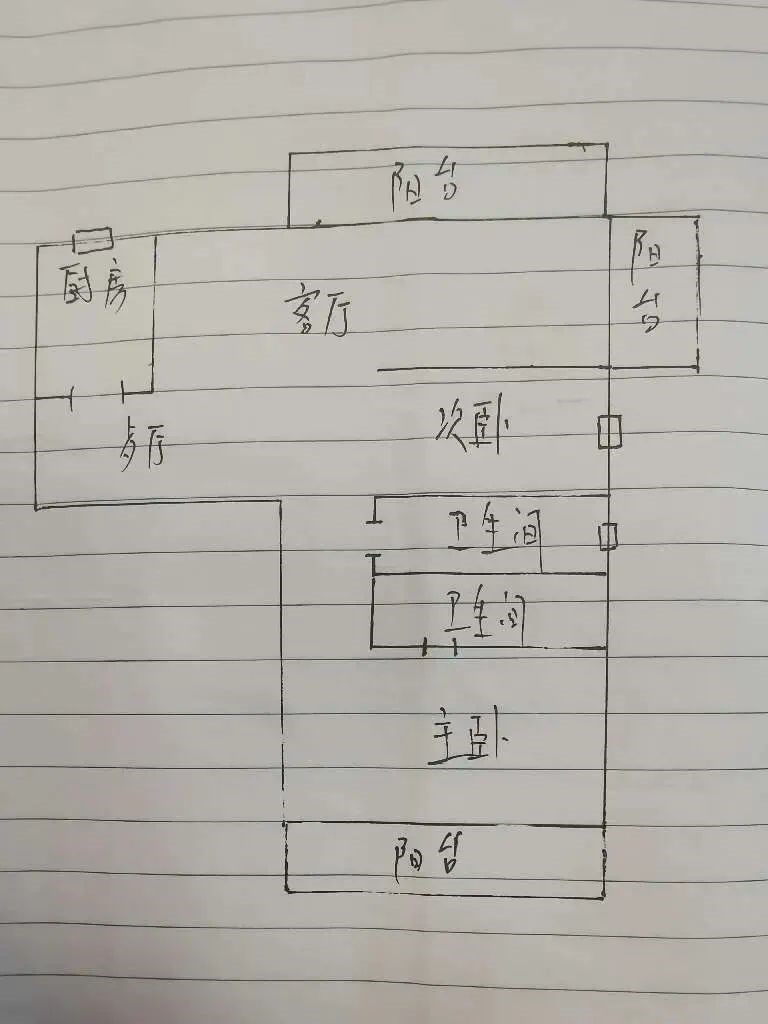 阳台
阳台
厨房
客厅
餐厅
次卧
卫生间
卫生间
主卧
阳台